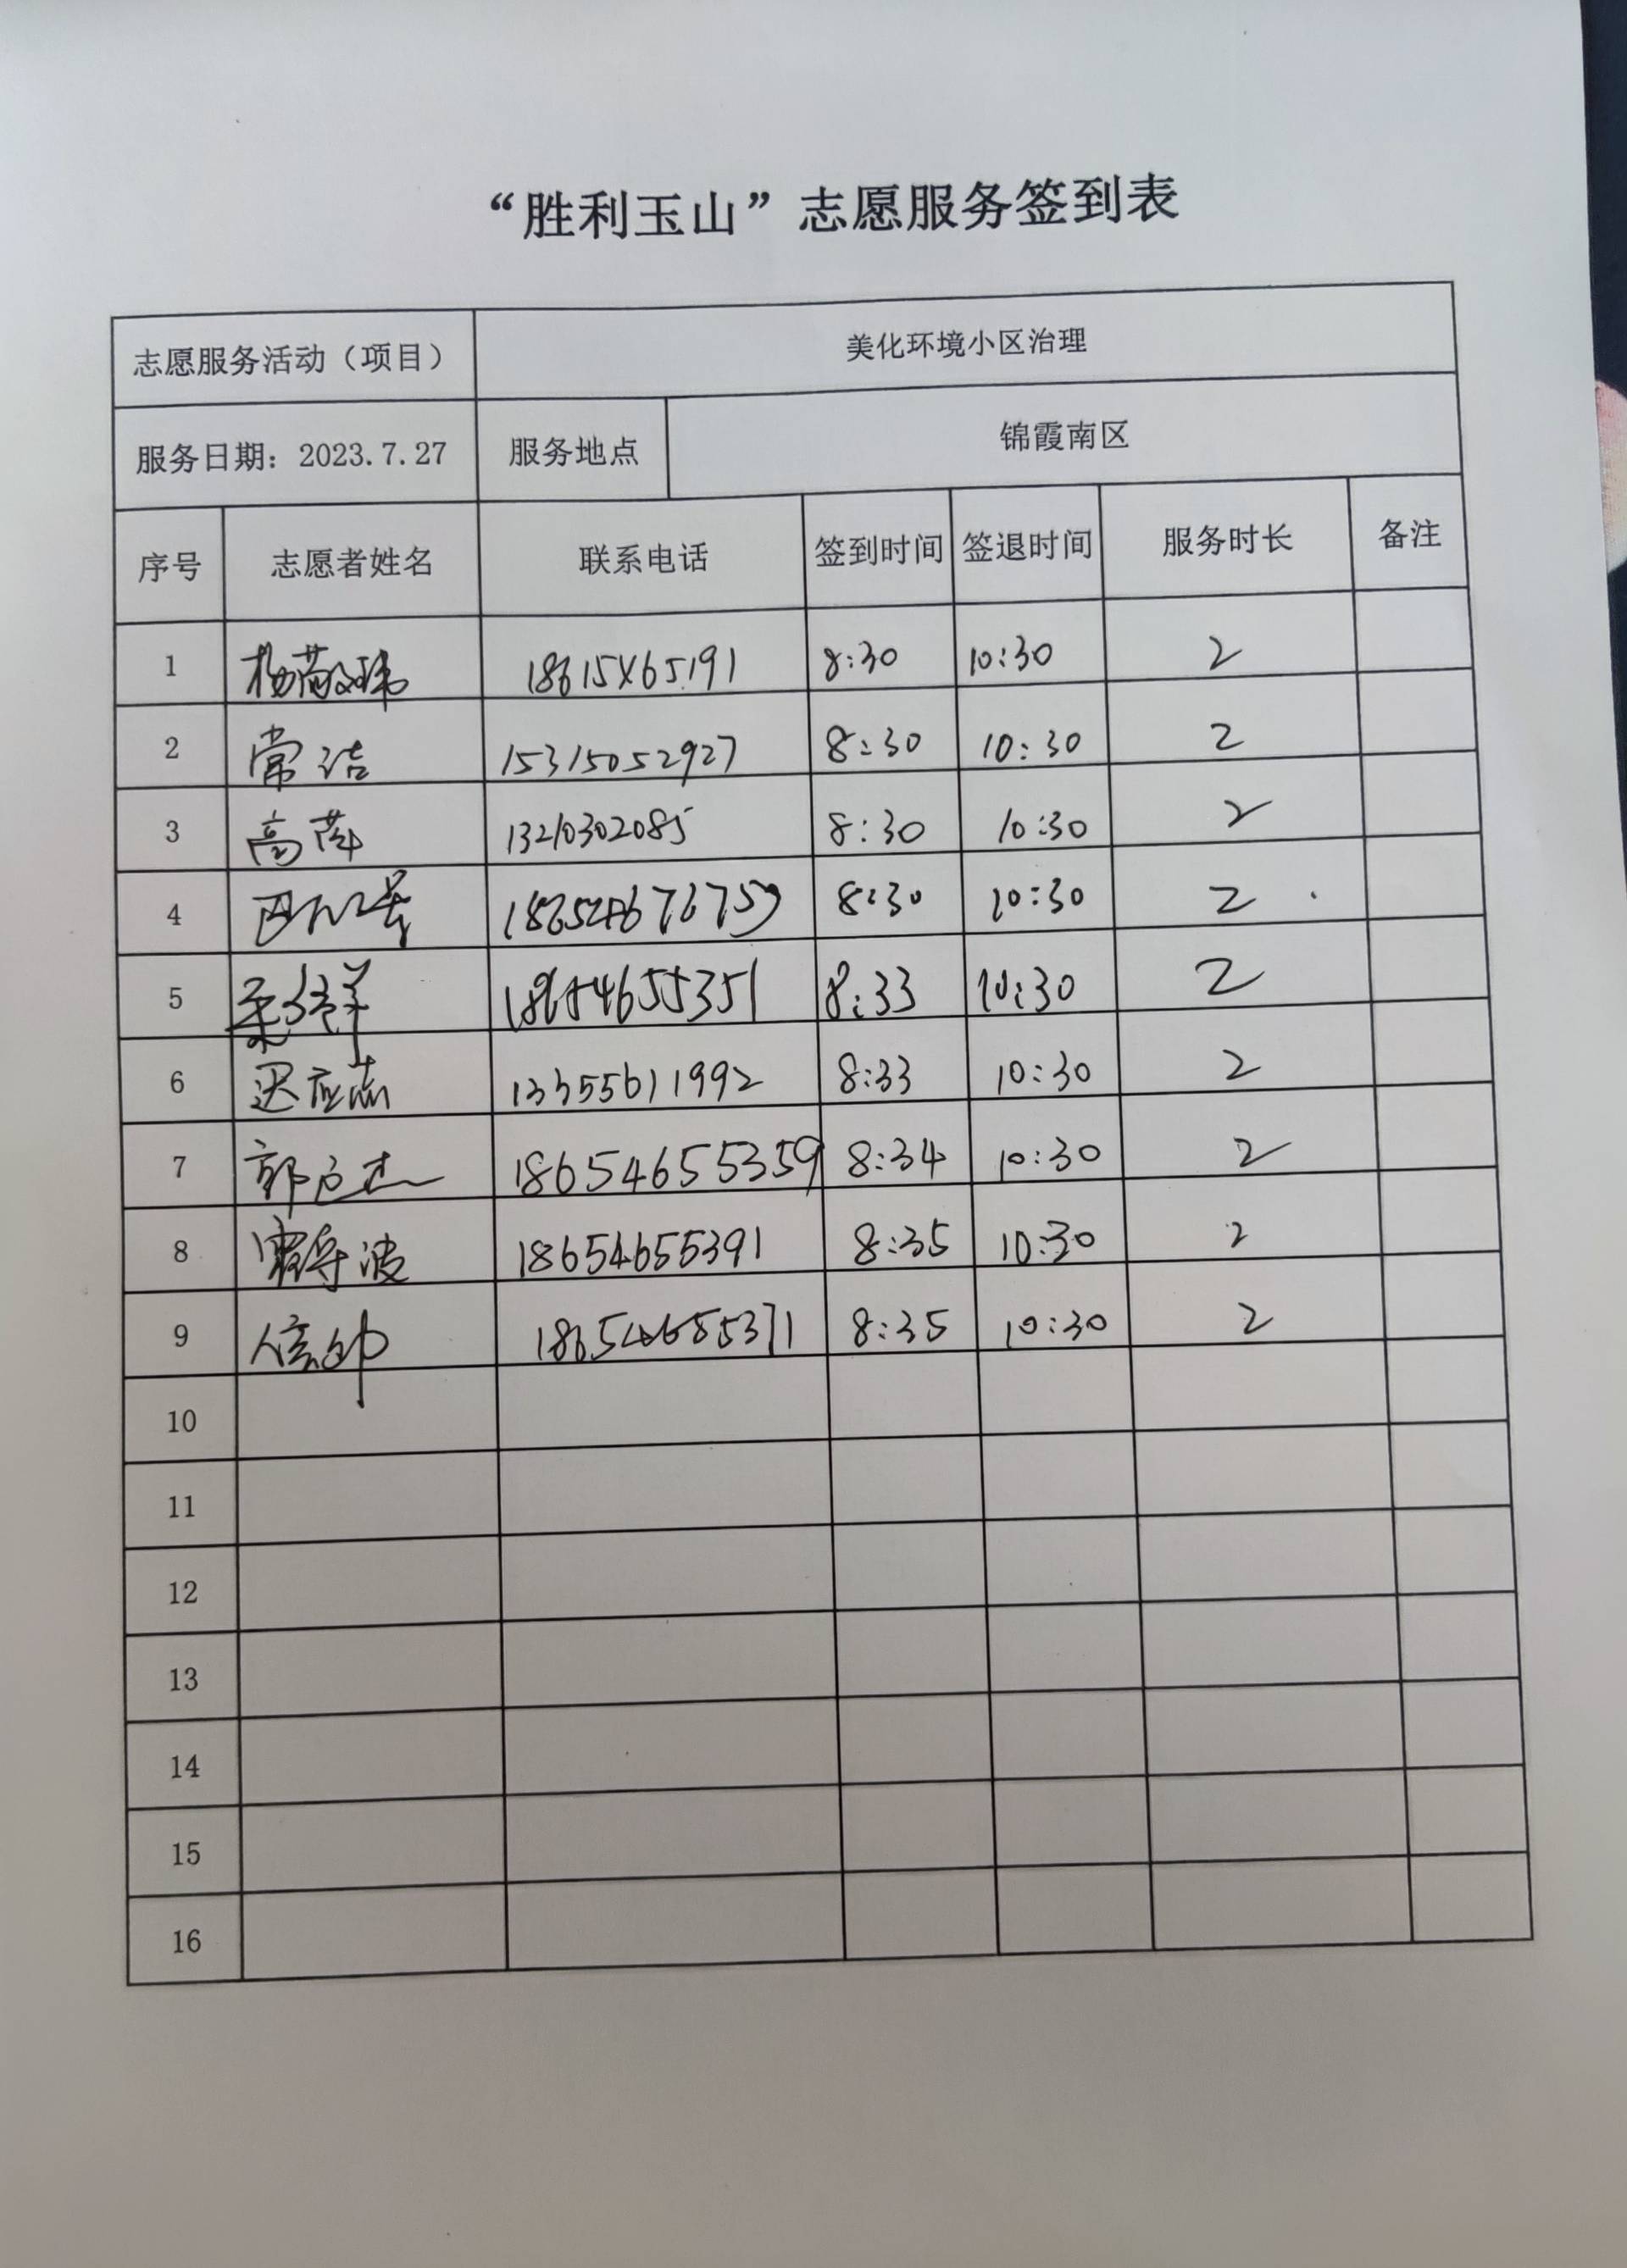 “胜利玉山”志愿服务签到表
志愿服务活动（项目） 美化环境小区治理
服务日期：2023.7.27 服务地点 锦霞南区
序号 志愿者姓名 联系电话 签到时间 签退时间 服务时长 备注
1 18615465191 8:30 10:30 2
2 常洁 15315052927 8:30 10:30 2
3 高萍 13210302085 8:30 10:30 2
4 8:30 10:30 2
5 18654655351 8:33 10:30 2
6 迟应志 13355611992 8:33 10:30 2
7 18654655359 8:34 10:30 2
8 18654655391 8:35 10:30 2
9 信帅 18654655371 8:35 10:30 2
10
11
12
13
14
15
16